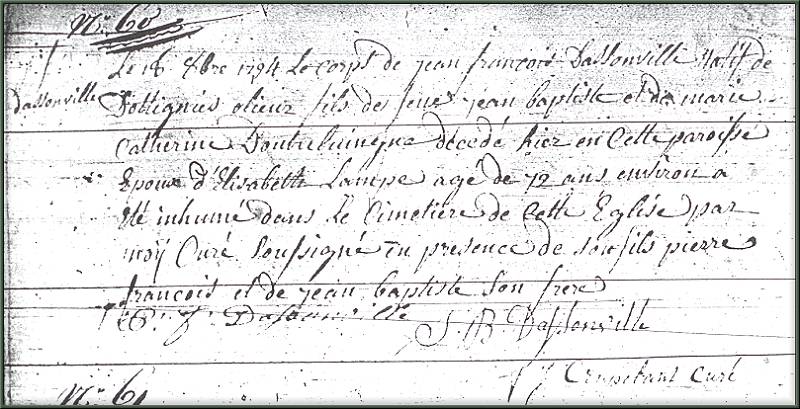 N.° 60
dassonville
Le 18 8bre 1794 Le corps de jean françois Dassonville Natif de
Dottignies olieur fils des feus jean baptiste et de marie
Catherine decedé hier en cette paroisse
Epoux d'Elisabeth Lampe agé de 72 ans environ a
été inhumé dans Le Cimetiere de Cette Eglise par
moÿ Curé Soussigné En presence de son fils pierre
françois et de jean baptiste Son frere
P. f. Dassonville
J. B Dassonville
Curé
N.° 61